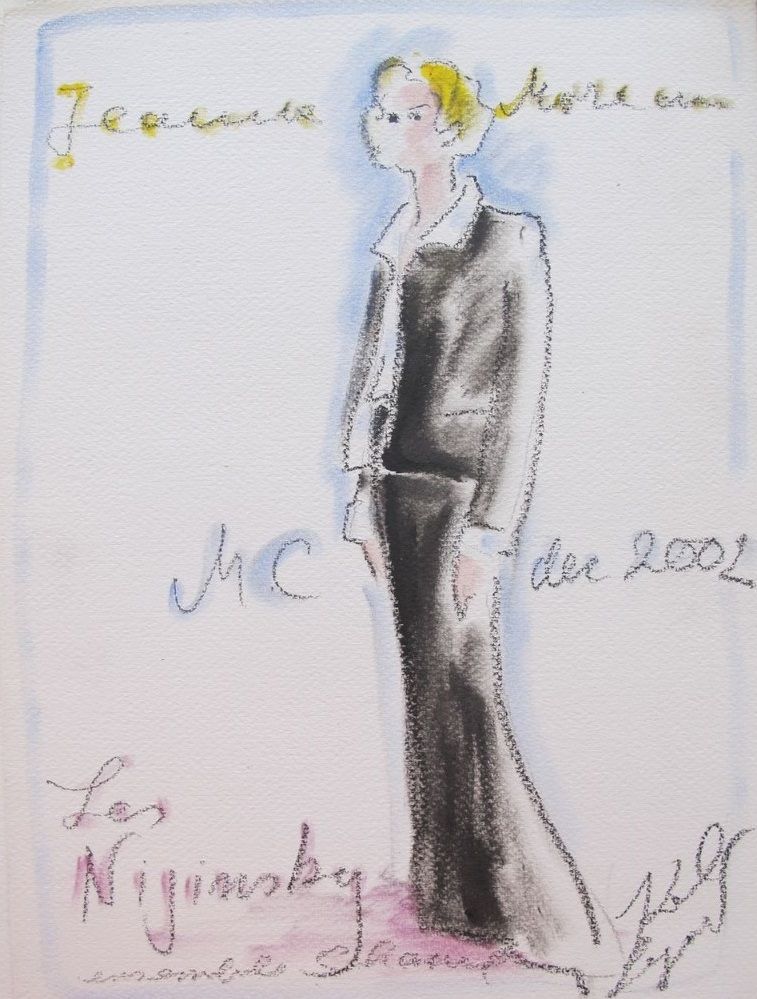 Jeanne Moreau
MC dec 2002
Les
Nijinsky
ensemble Chanel